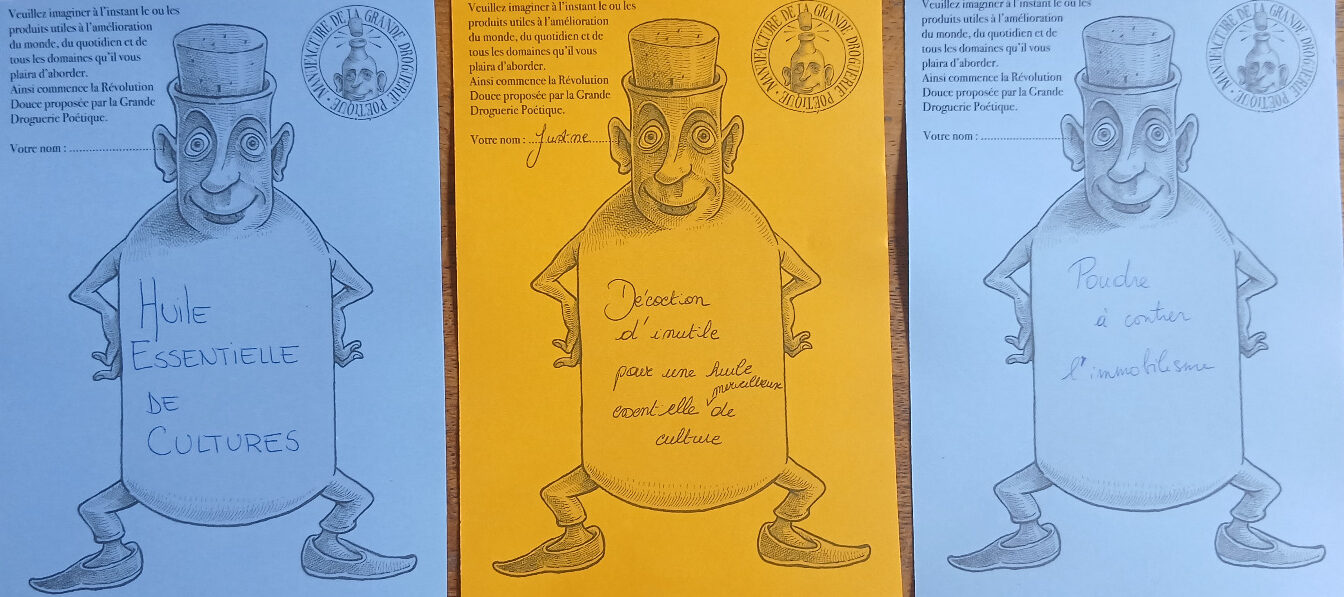 Veuillez imaginer à l'instant le ou les
produits utiles à l'amélioration
du monde, du quotidien et de
tous les domaines qu'il vous
plaira d'aborder.
Ainsi commence la Révolution
Douce proposée par la Grande
Droguerie Poétique.
Votre nom :
MANUFACTURE DE LA GRANDE DROGUERIE POÉTIQUE
HUILE
ESSENTIELLE
DE
CULTURES
Veuillez imaginer à l'instant le ou les
produits utiles à l'amélioration
du monde, du quotidien et de
tous les domaines qu'il vous
plaira d'aborder.
Ainsi commence la Révolution
Douce proposée par la Grande
Droguerie Poétique.
Votre nom : Justine
MANUFACTURE DE LA GRANDE DROGUERIE POÉTIQUE
Décoction
d'inutile
pour une huile
merveilleux
essent-elle de
culture
Veuillez imaginer à l'instant le ou les
produits utiles à l'amélioration
du monde, du quotidien et de
tous les domaines qu'il vous
plaira d'aborder.
Ainsi commence la Révolution
Douce proposée par la Grande
Droguerie Poétique.
Votre nom :
MANUFACTURE DE LA GRANDE DROGUERIE POÉTIQUE
Poudre
à contrer
l'immobilisme